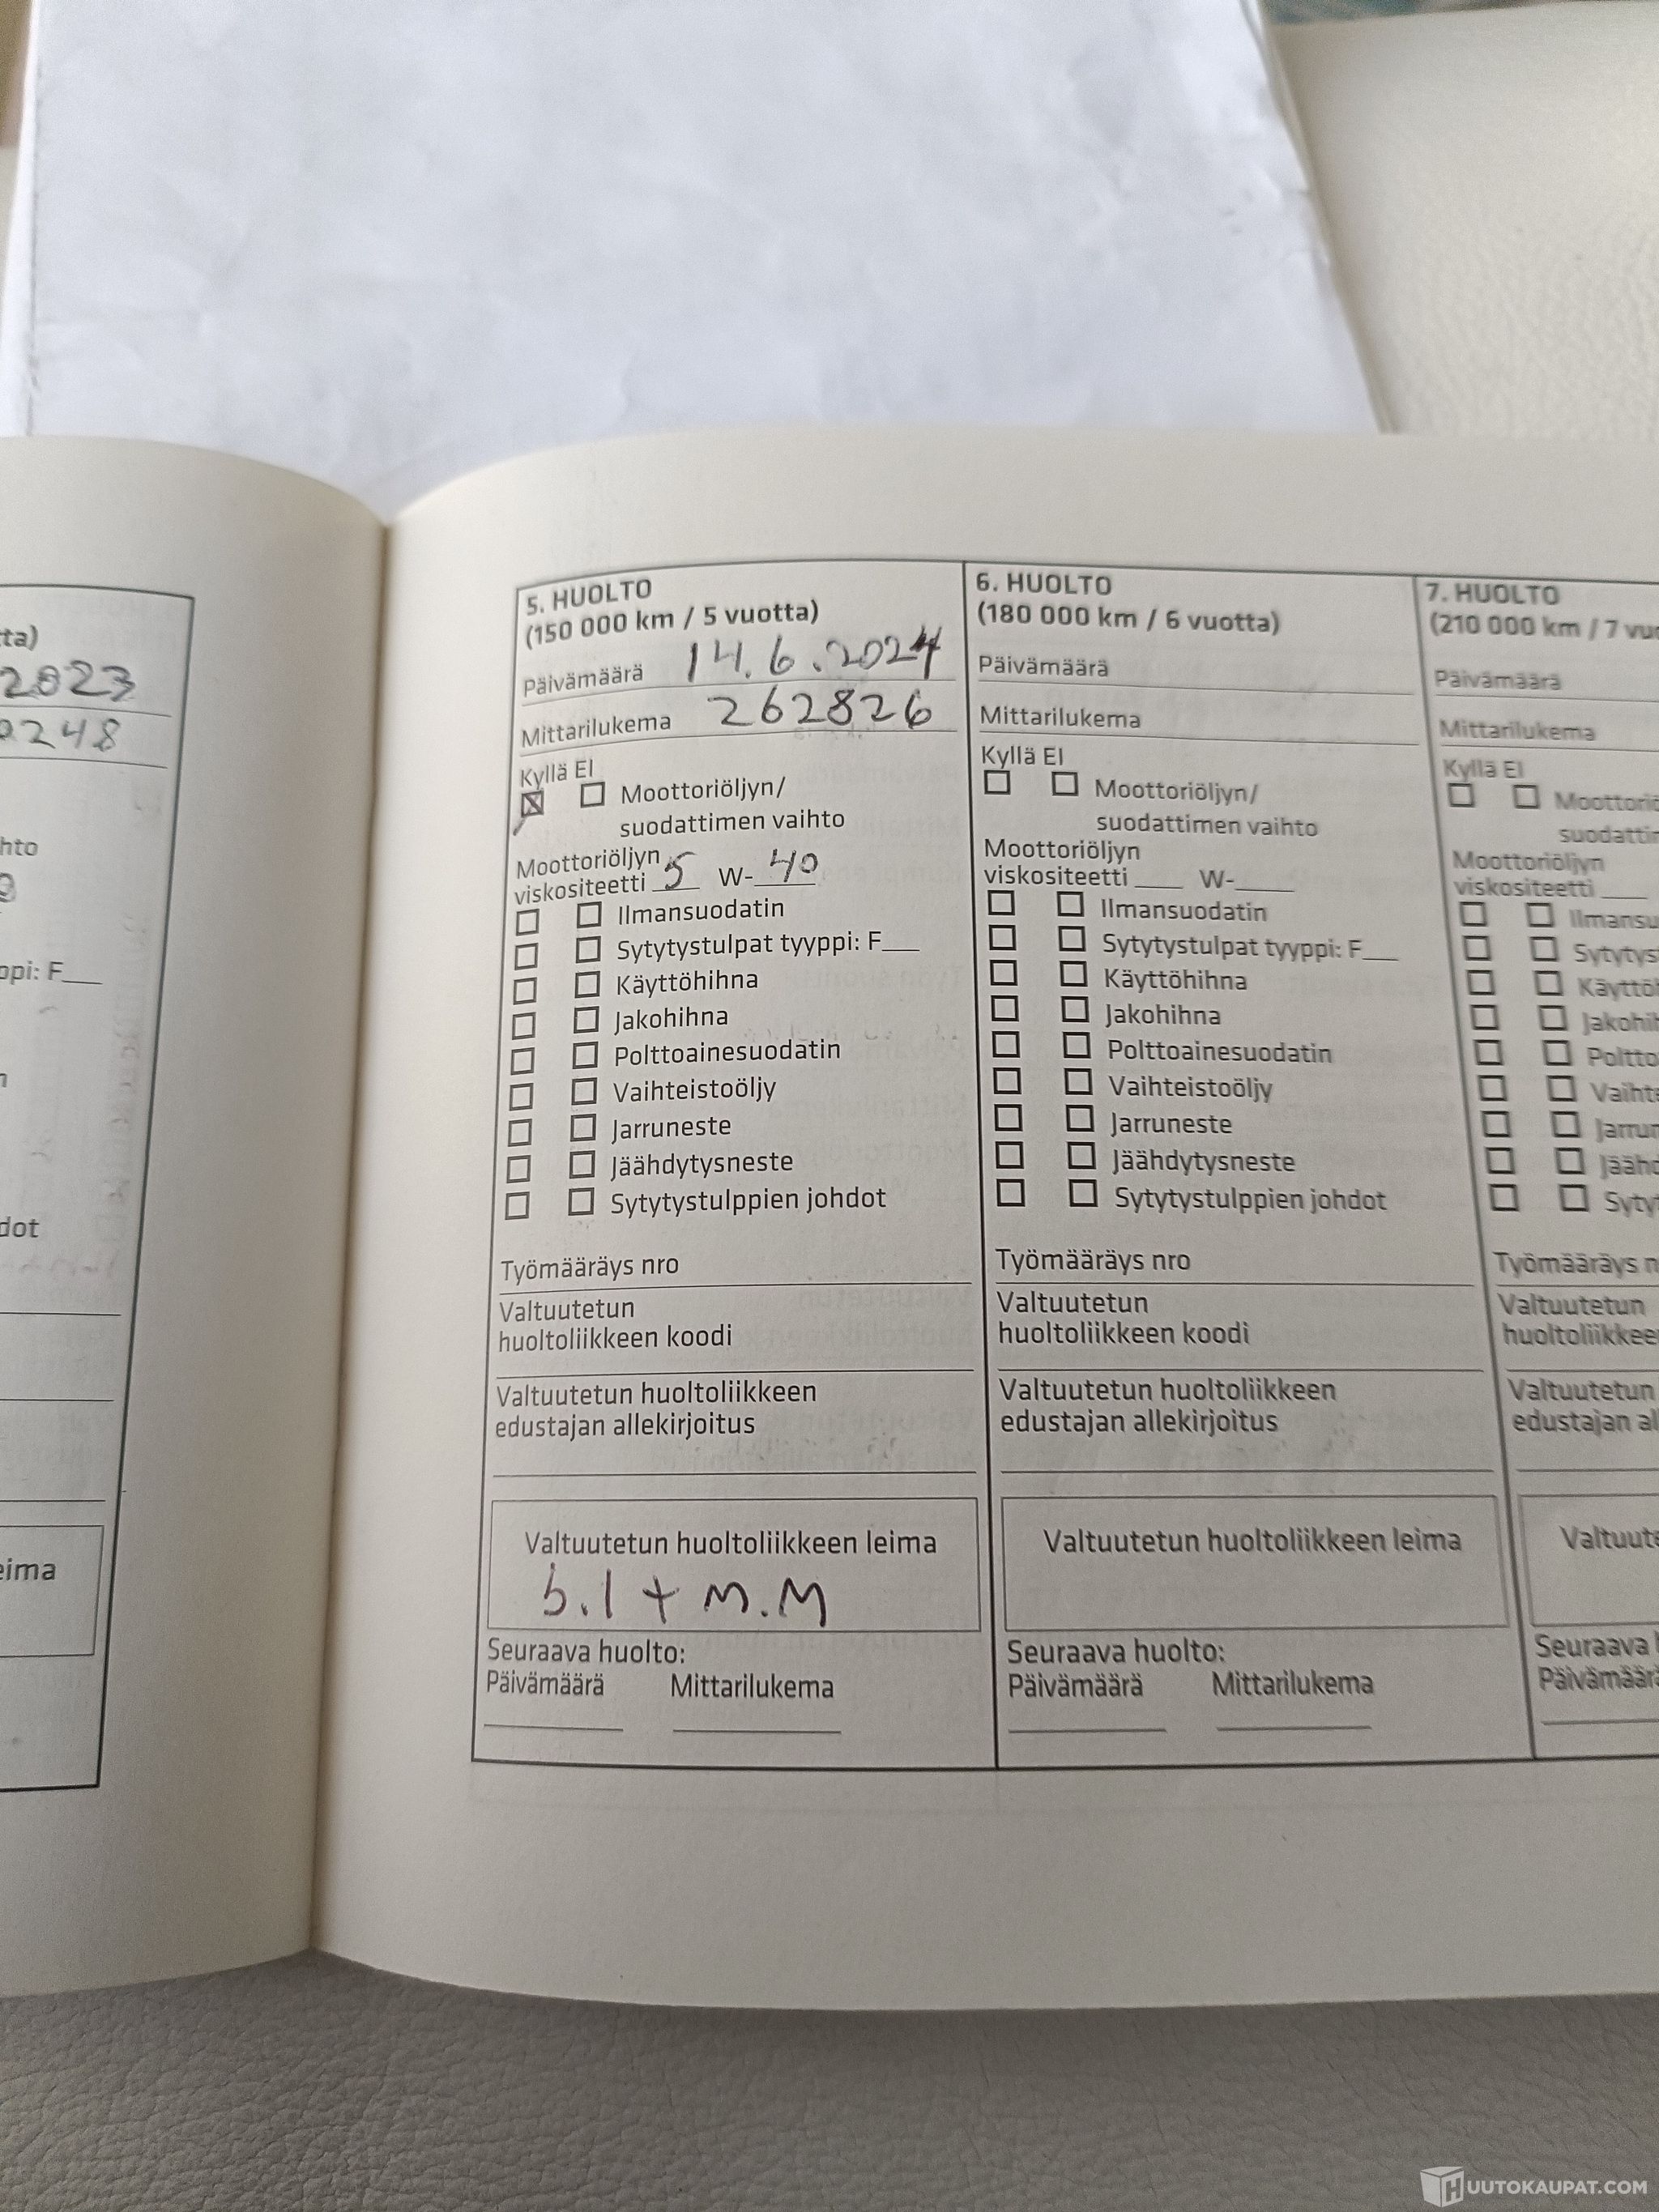 tta)
2023
2248
hto
ppi: F___
dot
eima
5. HUOLTO
(150 000 km / 5 vuotta)
Päivämäärä 14.6.2024
Mittarilukema 262826
Kyllä EI
Moottoriöljyn/
suodattimen vaihto
Moottoriöljyn
viskositeetti 5 W-40
Ilmansuodatin
Sytytystulpat tyyppi: F___
Käyttöhihna
Jakohihna
Polttoainesuodatin
Vaihteistoöljy
Jarruneste
Jäähdytysneste
Sytytystulppien johdot
Työmääräys nro
Valtuutetun
huoltoliikkeen koodi
Valtuutetun huoltoliikkeen
edustajan allekirjoitus
Valtuutetun huoltoliikkeen leima
5.1 + M.M
Seuraava huolto:
Päivämäärä Mittarilukema
6. HUOLTO
(180 000 km / 6 vuotta)
Päivämäärä
Mittarilukema
Kyllä EI
Moottoriöljyn/
suodattimen vaihto
Moottoriöljyn
viskositeetti ___ W-___
Ilmansuodatin
Sytytystulpat tyyppi: F___
Käyttöhihna
Jakohihna
Polttoainesuodatin
Vaihteistoöljy
Jarruneste
Jäähdytysneste
Sytytystulppien johdot
Työmääräys nro
Valtuutetun
huoltoliikkeen koodi
Valtuutetun huoltoliikkeen
edustajan allekirjoitus
Valtuutetun huoltoliikkeen leima
Seuraava huolto:
Päivämäärä Mittarilukema
7. HUOLTO
(210 000 km / 7 vuo
Päivämäärä
Mittarilukema
Kyllä EI
Moottoriö
suodattin
Moottoriöljyn
viskositeetti ___
Ilmansu
Sytytys
Käyttö
Jakohih
Poltto
Vaihte
Jarrun
Jäähd
Syty
Työmääräys n
Valtuutetun
huoltoliikkee
Valtuutetun
edustajan al
Valtuute
Seuraava
Päivämäär
HUUTOKAUPAT.COM